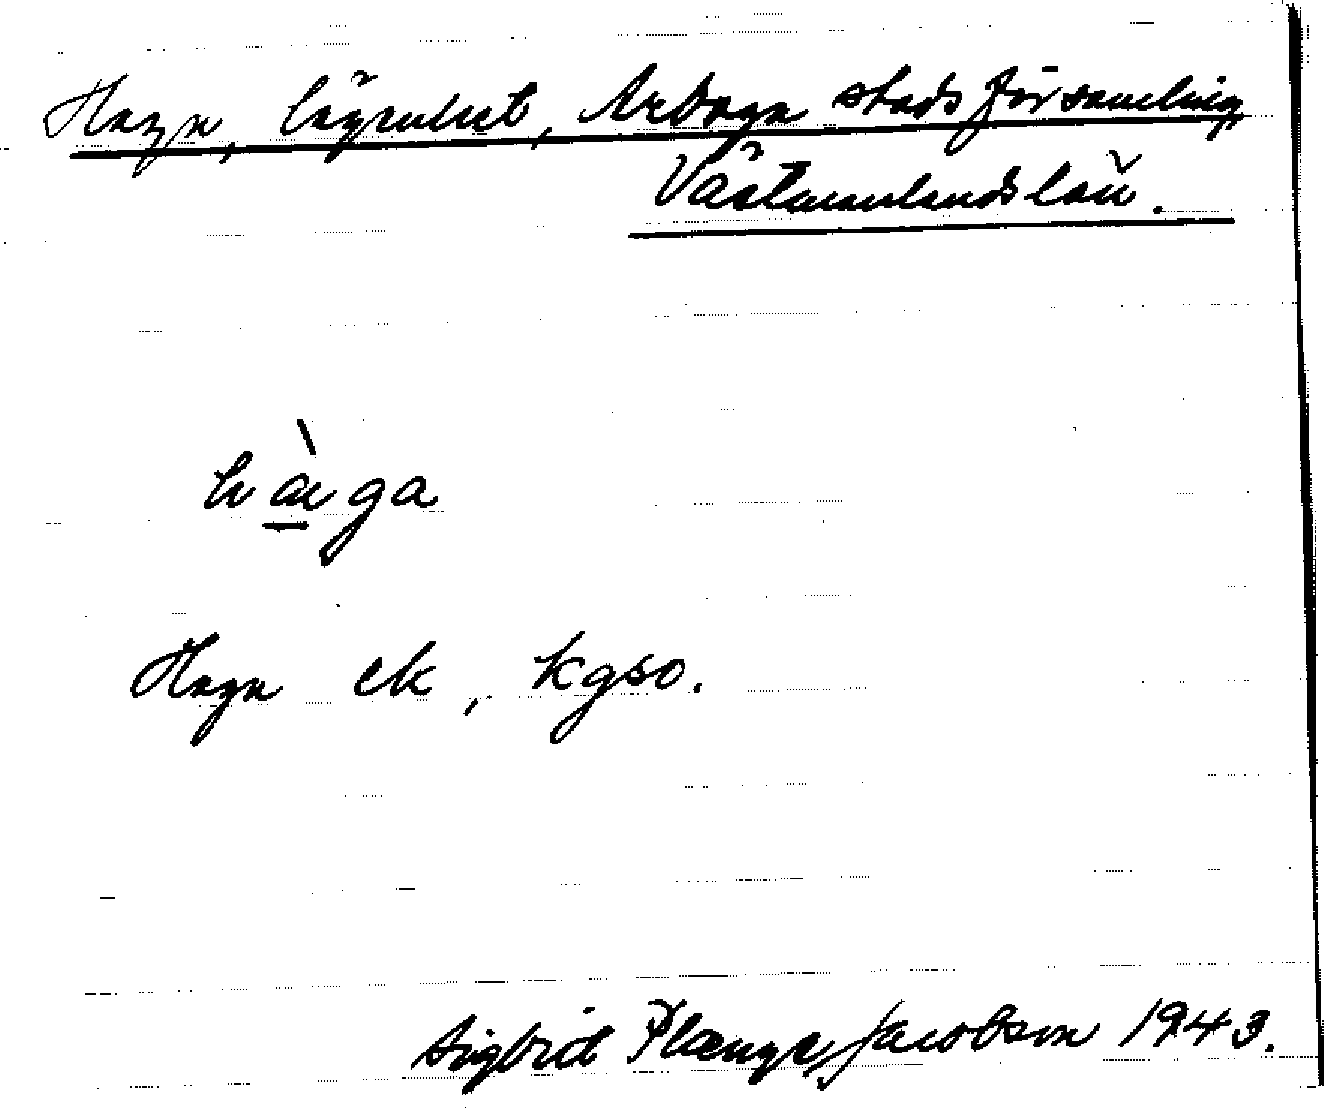 Haga, lägenhet, Arboga stadsförsamling
Västmanlands län.
hàga
Haga ek, kgso.
Sigbrid Plænge Jacobson 1943.